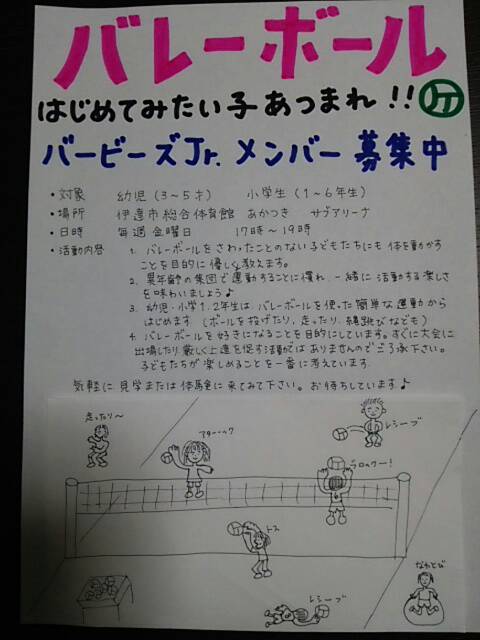 バレーボール
はじめてみたい子あつまれ!!
バービーズJr.メンバー募集中
・対象 幼児(3~5才) 小学生(1~6年生)
・場所 伊達市総合体育館 あかつき サブアリーナ
・日時 毎週金曜日 17時~19時
・活動内容 1. バレーボールをさわったことのない子どもたちにも体を動かす
ことを目的に優しく教えます。
2. 異年齢の集団で運動することに慣れ、一緒に活動する楽しさ
を味わいましょう♪
3. 幼児・小学1,2年生は、バレーボールを使った簡単な運動から
はじめます(ボールを投げたり、走ったり、縄跳びなども)
4. バレーボールを好きになることを目的にしています。すぐに大会に
出場したり厳しく上達を促す活動ではありませんのでご了承下さい。
子どもたちが楽しめることを一番に考えています。
気軽に見学または体験に来てみて下さい。お待ちしています♪
走ったり~
アターック
レシーブ
ブロックー!
トス
レシーブ
なわとび